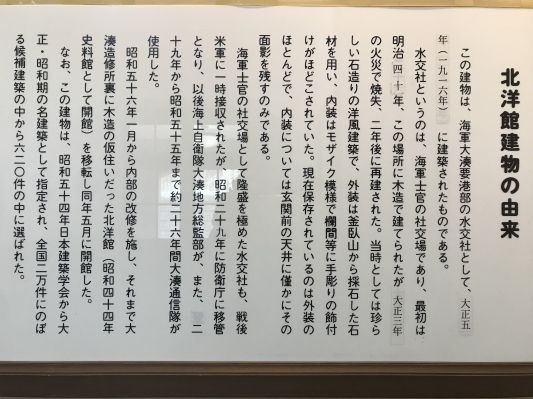 北洋館建物の由来
この建物は、海軍大湊要港部の水交社として、大正五
年（一九一六年）に建築されたものである。
水交社というのは、海軍士官の社交場であり、最初は
明治四十年、この場所に木造で建てられたが大正三年
の火災で焼失、二年後に再建された。当時としては珍ら
しい石造りの洋風建築で、外装は釜臥山から採石した石
材を用い、内装はモザイク模様で欄間等に手彫りの飾付
けがほどこされていた。現在保存されているのは外装の
ほとんどで、内装については玄関前の天井に僅かにその
面影を残すのみである。
海軍士官の社交場として隆盛を極めた水交社も、戦後
米軍に一時接収されたが、昭和二十九年に防衛庁に移管
となり、以後海上自衛隊大湊地方総監部が、また、二
十九年から昭和五十五年まで約二十六年間大湊通信隊が
使用した。
昭和五十六年一月から内部の改修を施し、それまで大
湊造修所裏に木造の仮住いだった北洋館（昭和四十四年
史料館として開館）を移転し同年五月に開館した。
なお、この建物は、昭和五十四年日本建築学会から大
正・昭和期の名建築として指定され、全国二万件にのぼ
る候補建築の中から六二〇件の中に選ばれた。